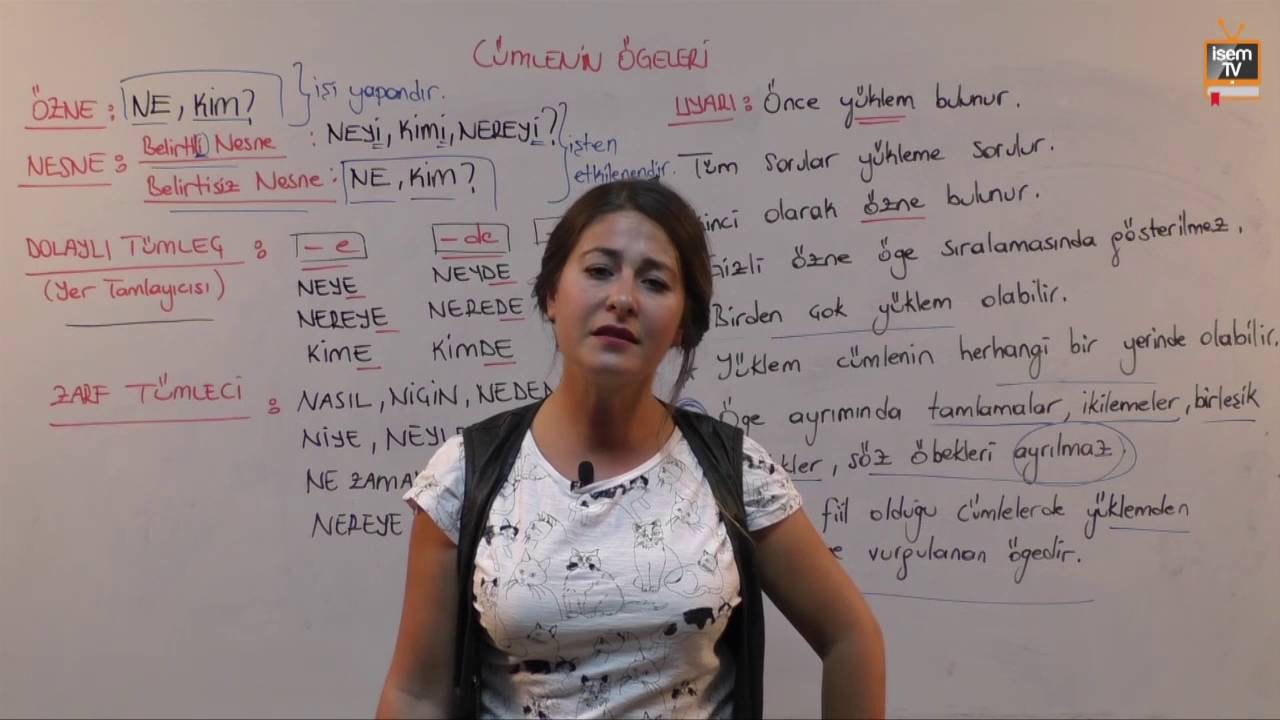 CÜMLENİN ÖGELERİ
isem
TV
ÖZNE : NE, Kim? işi yapandır.
NESNE : Belirtili Nesne : NEYi, Kimi, NEREYi?
Belirtisiz Nesne : NE, Kim?
işten
etkilenendir.
DOLAYLI TÜMLEÇ : -e -de
(Yer Tamlayıcısı)
NEYE NEYDE
NEREYE NEREDE
KİME KİMDE
ZARF TÜMLECİ : NASIL, NİÇİN, NEDEN
NİYE,
NE
NEREYE
UYARI : Önce yüklem bulunur.
Tüm sorular yükleme sorulur.
olarak özne bulunur.
özne öge sıralamasında gösterilmez.
Birden çok yüklem olabilir.
Yüklem cümlenin herhangi bir yerinde olabilir.
Öge ayrımında tamlamalar, ikilemeler, birleşik
söz öbekleri ayrılmaz.
fiil olduğu cümlelerde yüklemden
vurgulanan ögedir.